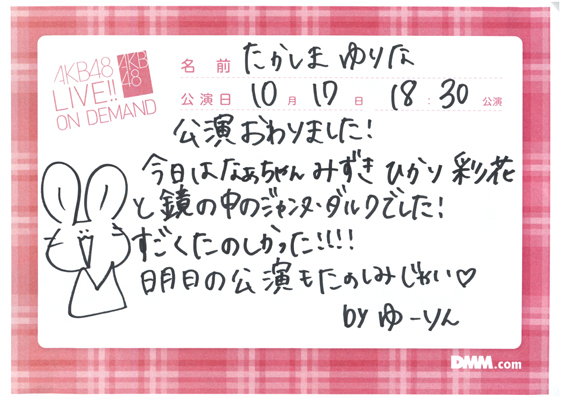 AKB48
LIVE!!
ON DEMAND
AKB
48
名 前 たかしま ゆりな
公演日 10 月 17 日 18 : 30 公演
公演おわりました!
今日はなぁちゃん みずき ひかり 彩花
と鏡の中のジャンヌ・ダルクでした!
すごくたのしかった!!!!
明日の公演もたのしみじゃい♡
by ゆーりん
DMM.com